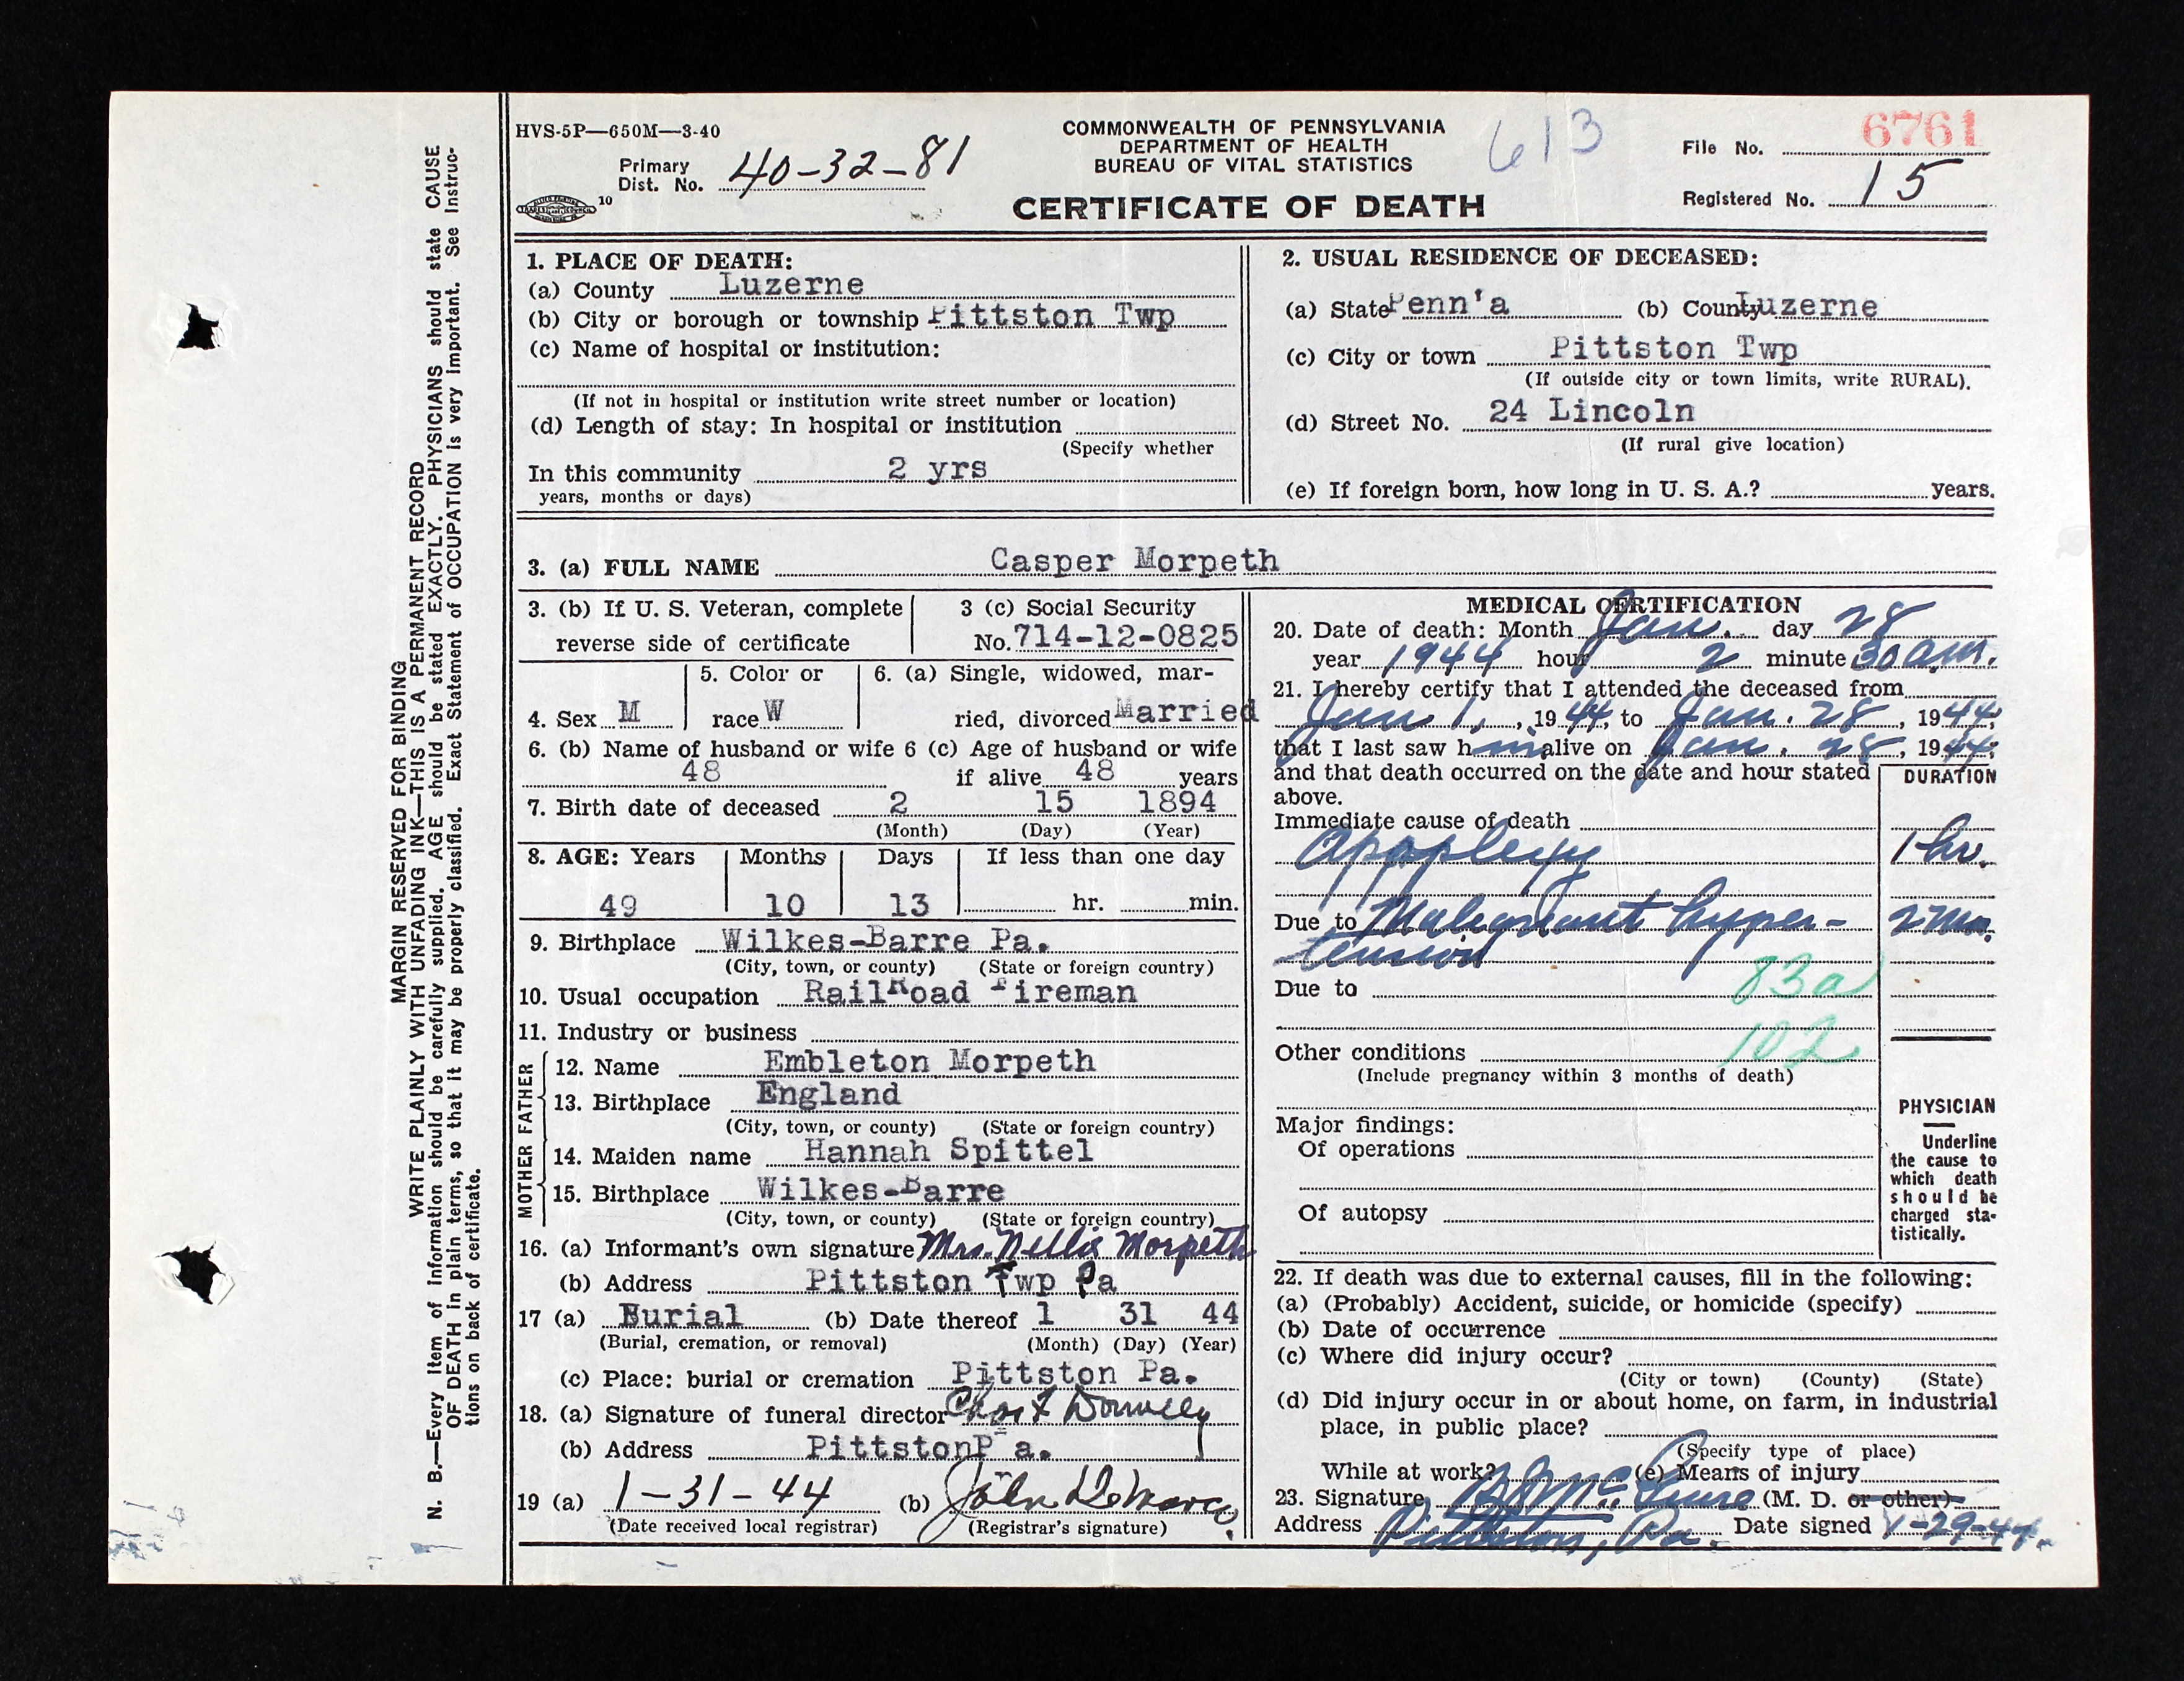 HVS-5P—650M—3-40
Primary Dist. No. 40-32-81
10
COMMONWEALTH OF PENNSYLVANIA
DEPARTMENT OF HEALTH
BUREAU OF VITAL STATISTICS
CERTIFICATE OF DEATH
613
File No. 6761
Registered No. 15
MARGIN RESERVED FOR BINDING
WRITE PLAINLY WITH UNFADING INK—THIS IS A PERMANENT RECORD
N. B.—Every item of information should be carefully supplied. AGE should be stated EXACTLY. PHYSICIANS should state CAUSE
OF DEATH in plain terms, so that it may be properly classified. Exact Statement of OCCUPATION is very important. See Instruc-
tions on back of certificate.
1. PLACE OF DEATH:
(a) County Luzerne
(b) City or borough or township Pittston Twp
(c) Name of hospital or institution:
(If not in hospital or institution write street number or location)
(d) Length of stay: In hospital or institution
(Specify whether
In this community 2 yrs
years, months or days)
2. USUAL RESIDENCE OF DECEASED:
(a) State Penn'a (b) County Luzerne
(c) City or town Pittston Twp
(If outside city or town limits, write RURAL).
(d) Street No. 24 Lincoln
(If rural give location)
(e) If foreign born, how long in U. S. A.? years.
3. (a) FULL NAME Casper Morpeth
3. (b) If U. S. Veteran, complete
reverse side of certificate
3 (c) Social Security
No. 714-12-0825
4. Sex M
5. Color or
race W
6. (a) Single, widowed, mar-
ried, divorced Married
6. (b) Name of husband or wife 6 (c) Age of husband or wife
48 if alive 48 years
7. Birth date of deceased 2 15 1894
(Month) (Day) (Year)
8. AGE: Years Months Days If less than one day
49 10 13 hr. min.
9. Birthplace Wilkes-Barre Pa.
(City, town, or county) (State or foreign country)
10. Usual occupation RailRoad Fireman
11. Industry or business
FATHER
12. Name Embleton Morpeth
13. Birthplace England
(City, town, or county) (State or foreign country)
MOTHER
14. Maiden name Hannah Spittel
15. Birthplace Wilkes-Barre
(City, town, or county) (State or foreign country)
16. (a) Informant's own signature Mrs. Nellie Morpeth
(b) Address Pittston Twp Pa
17 (a) Burial (b) Date thereof 1 31 44
(Burial, cremation, or removal) (Month) (Day) (Year)
(c) Place: burial or cremation Pittston Pa.
18. (a) Signature of funeral director Donnelly
(b) Address PittstonP a.
19 (a) 1-31-44 (b) John DeMarco
(Date received local registrar) (Registrar's signature)
MEDICAL CERTIFICATION
20. Date of death: Month Jan. day 28
year 1944 hour 2 minute 30 a.m.
21. I hereby certify that I attended the deceased from
Jan 1, 1944, to Jan. 28, 1944;
that I last saw him alive on Jan. 28, 1944;
and that death occurred on the date and hour stated
above.
DURATION
Immediate cause of death
Apoplexy 1 hr.
Due to Malignant hyper- 2
tension
83a
Due to
102
Other conditions
(Include pregnancy within 3 months of death)
Major findings:
Of operations
Of autopsy
PHYSICIAN
Underline
the cause to
which death
should be
charged sta-
tistically.
22. If death was due to external causes, fill in the following:
(a) (Probably) Accident, suicide, or homicide (specify)
(b) Date of occurrence
(c) Where did injury occur?
(City or town) (County) (State)
(d) Did injury occur in or about home, on farm, in industrial
place, in public place?
(Specify type of place)
While at work? (e) Means of injury
23. Signature (M. D. or other)
Address Pittston, Pa. Date signed 1-29-44.